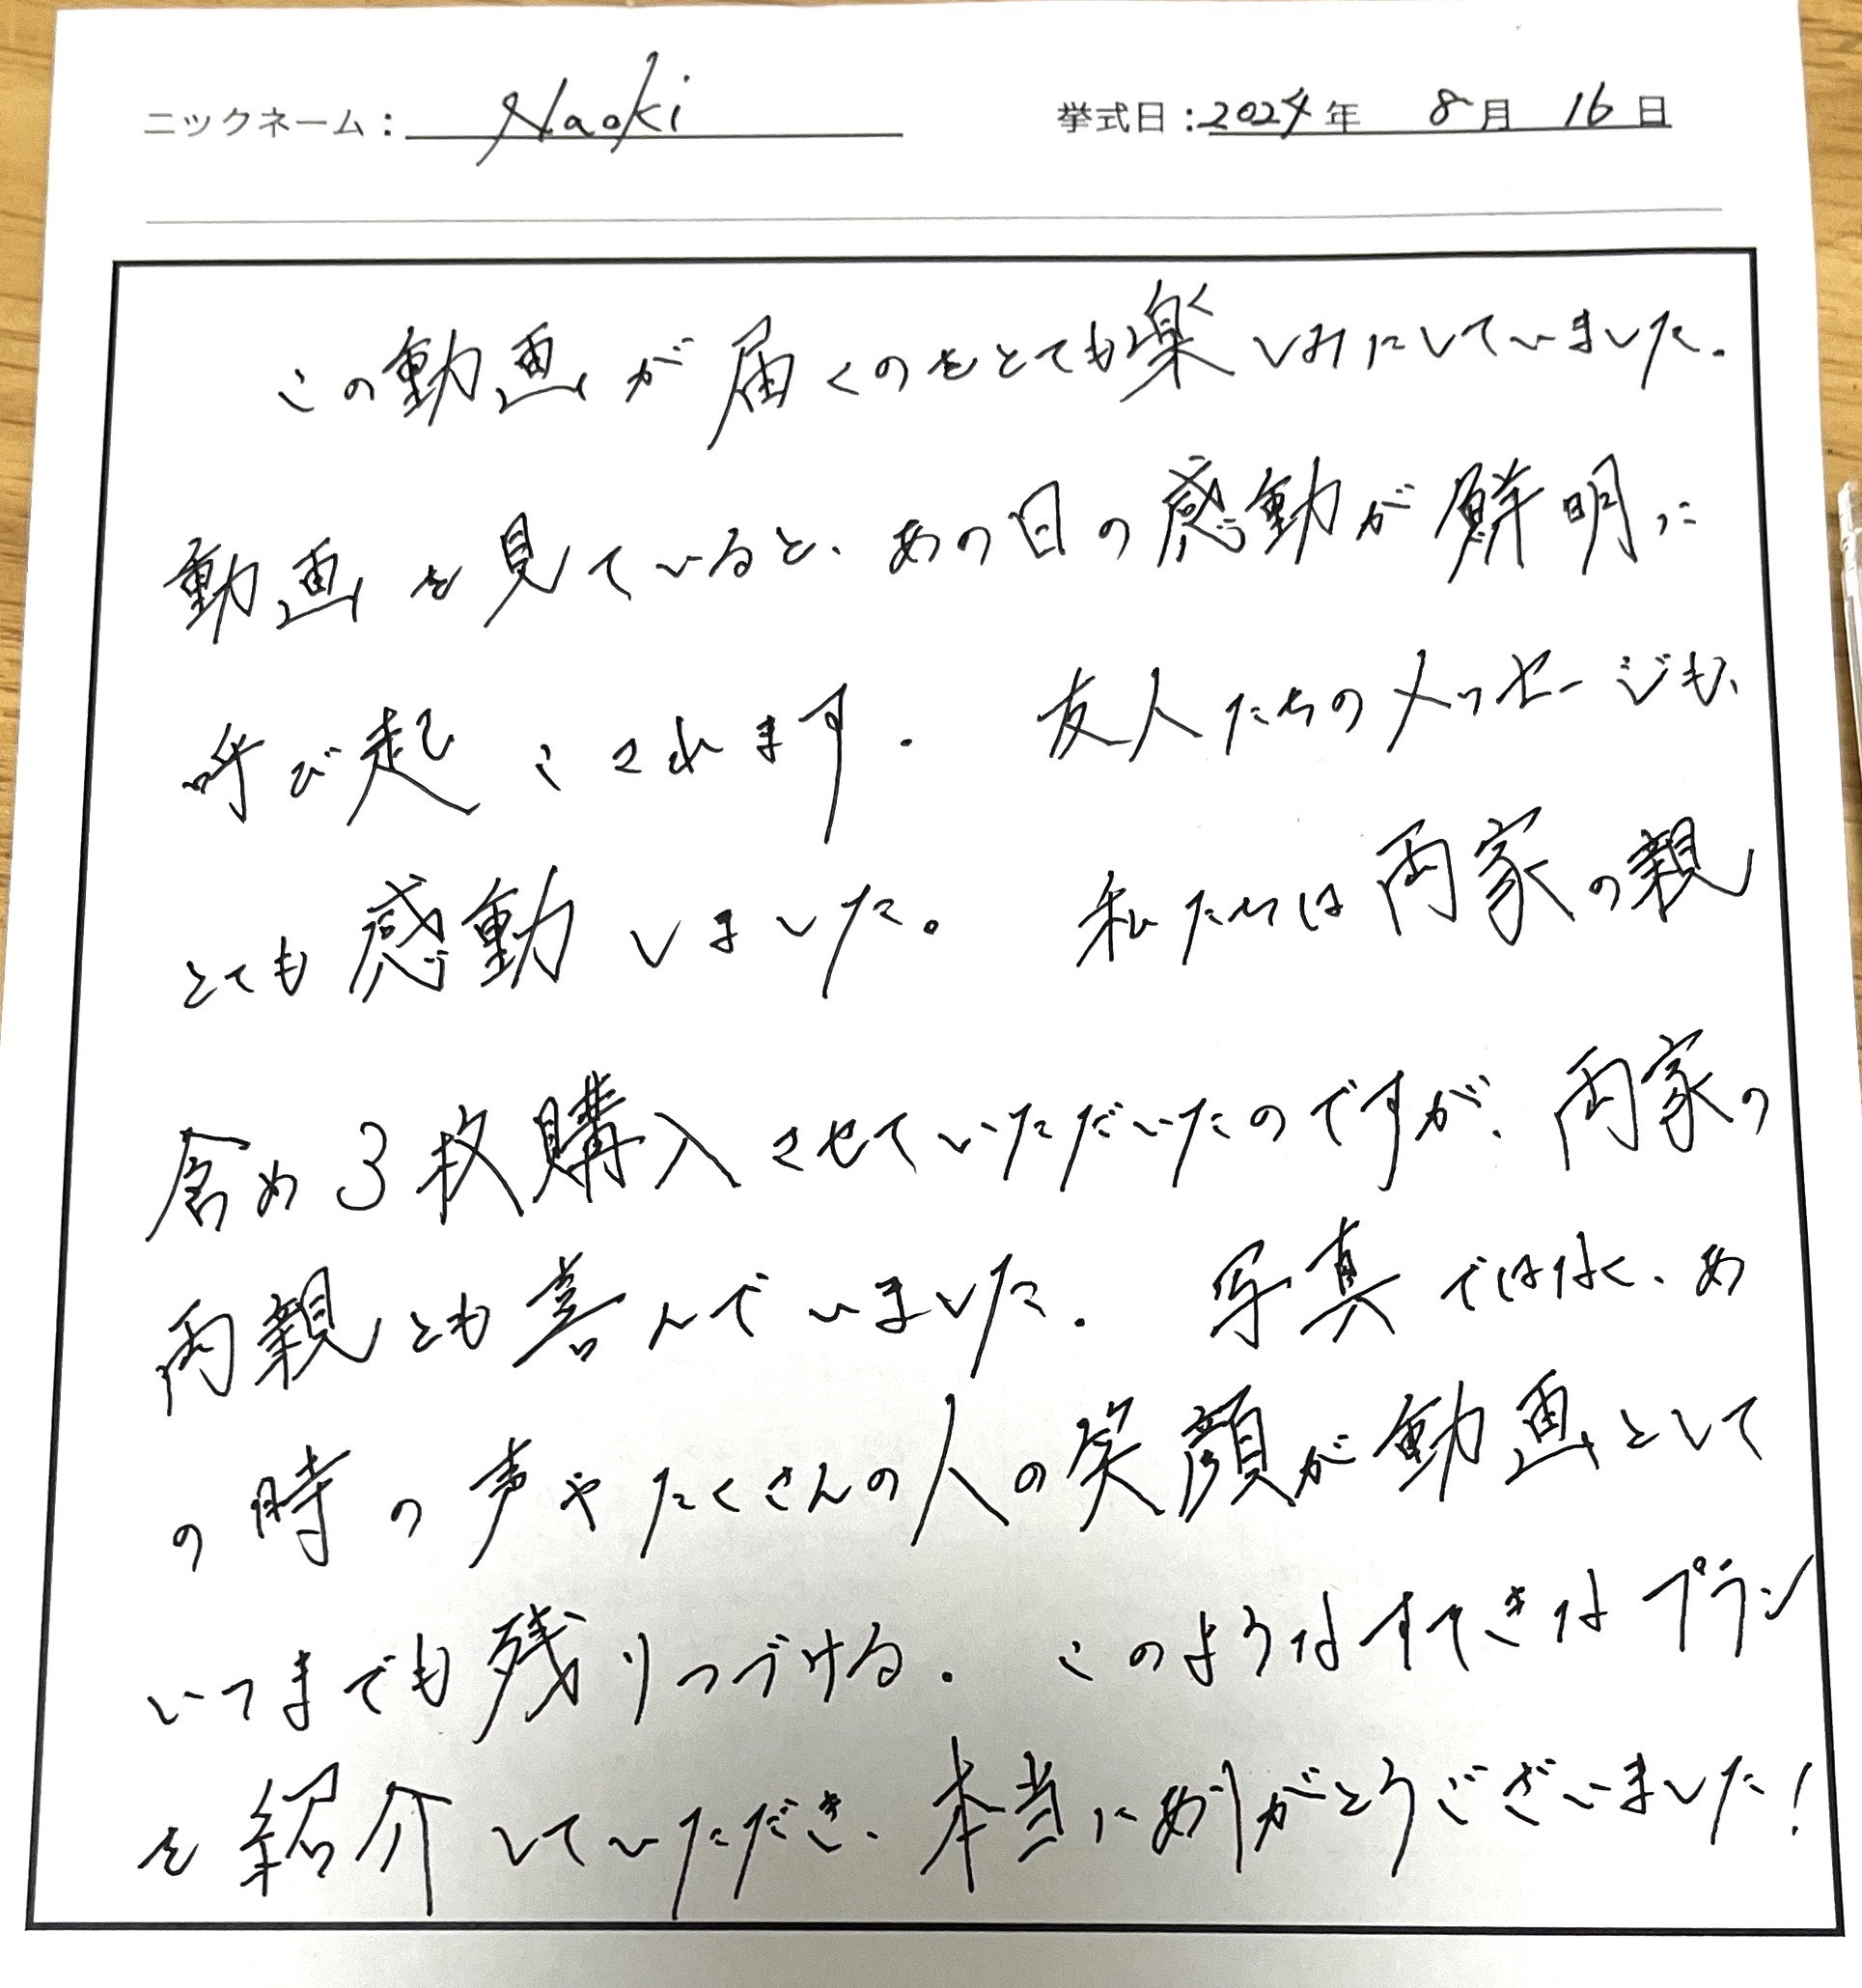 ニックネーム： Naoki 挙式日：2024年 8月 16日
この動画が届くのをとても楽しみにしていました.
動画を見ていると、あの日の感動が鮮明に
呼び起こされます. 友人たちのメッセージも、
とても感動しました。 私たちは両家の親
含め3枚購入させていただいたのですが、両家の
両親とも喜んでいました. 写真ではなく、あ
の時の声やたくさんの人の笑顔が動画として
いつまでも残りつづける. このようなすてきなプラン
を紹介していただき、本当にありがとうございました!